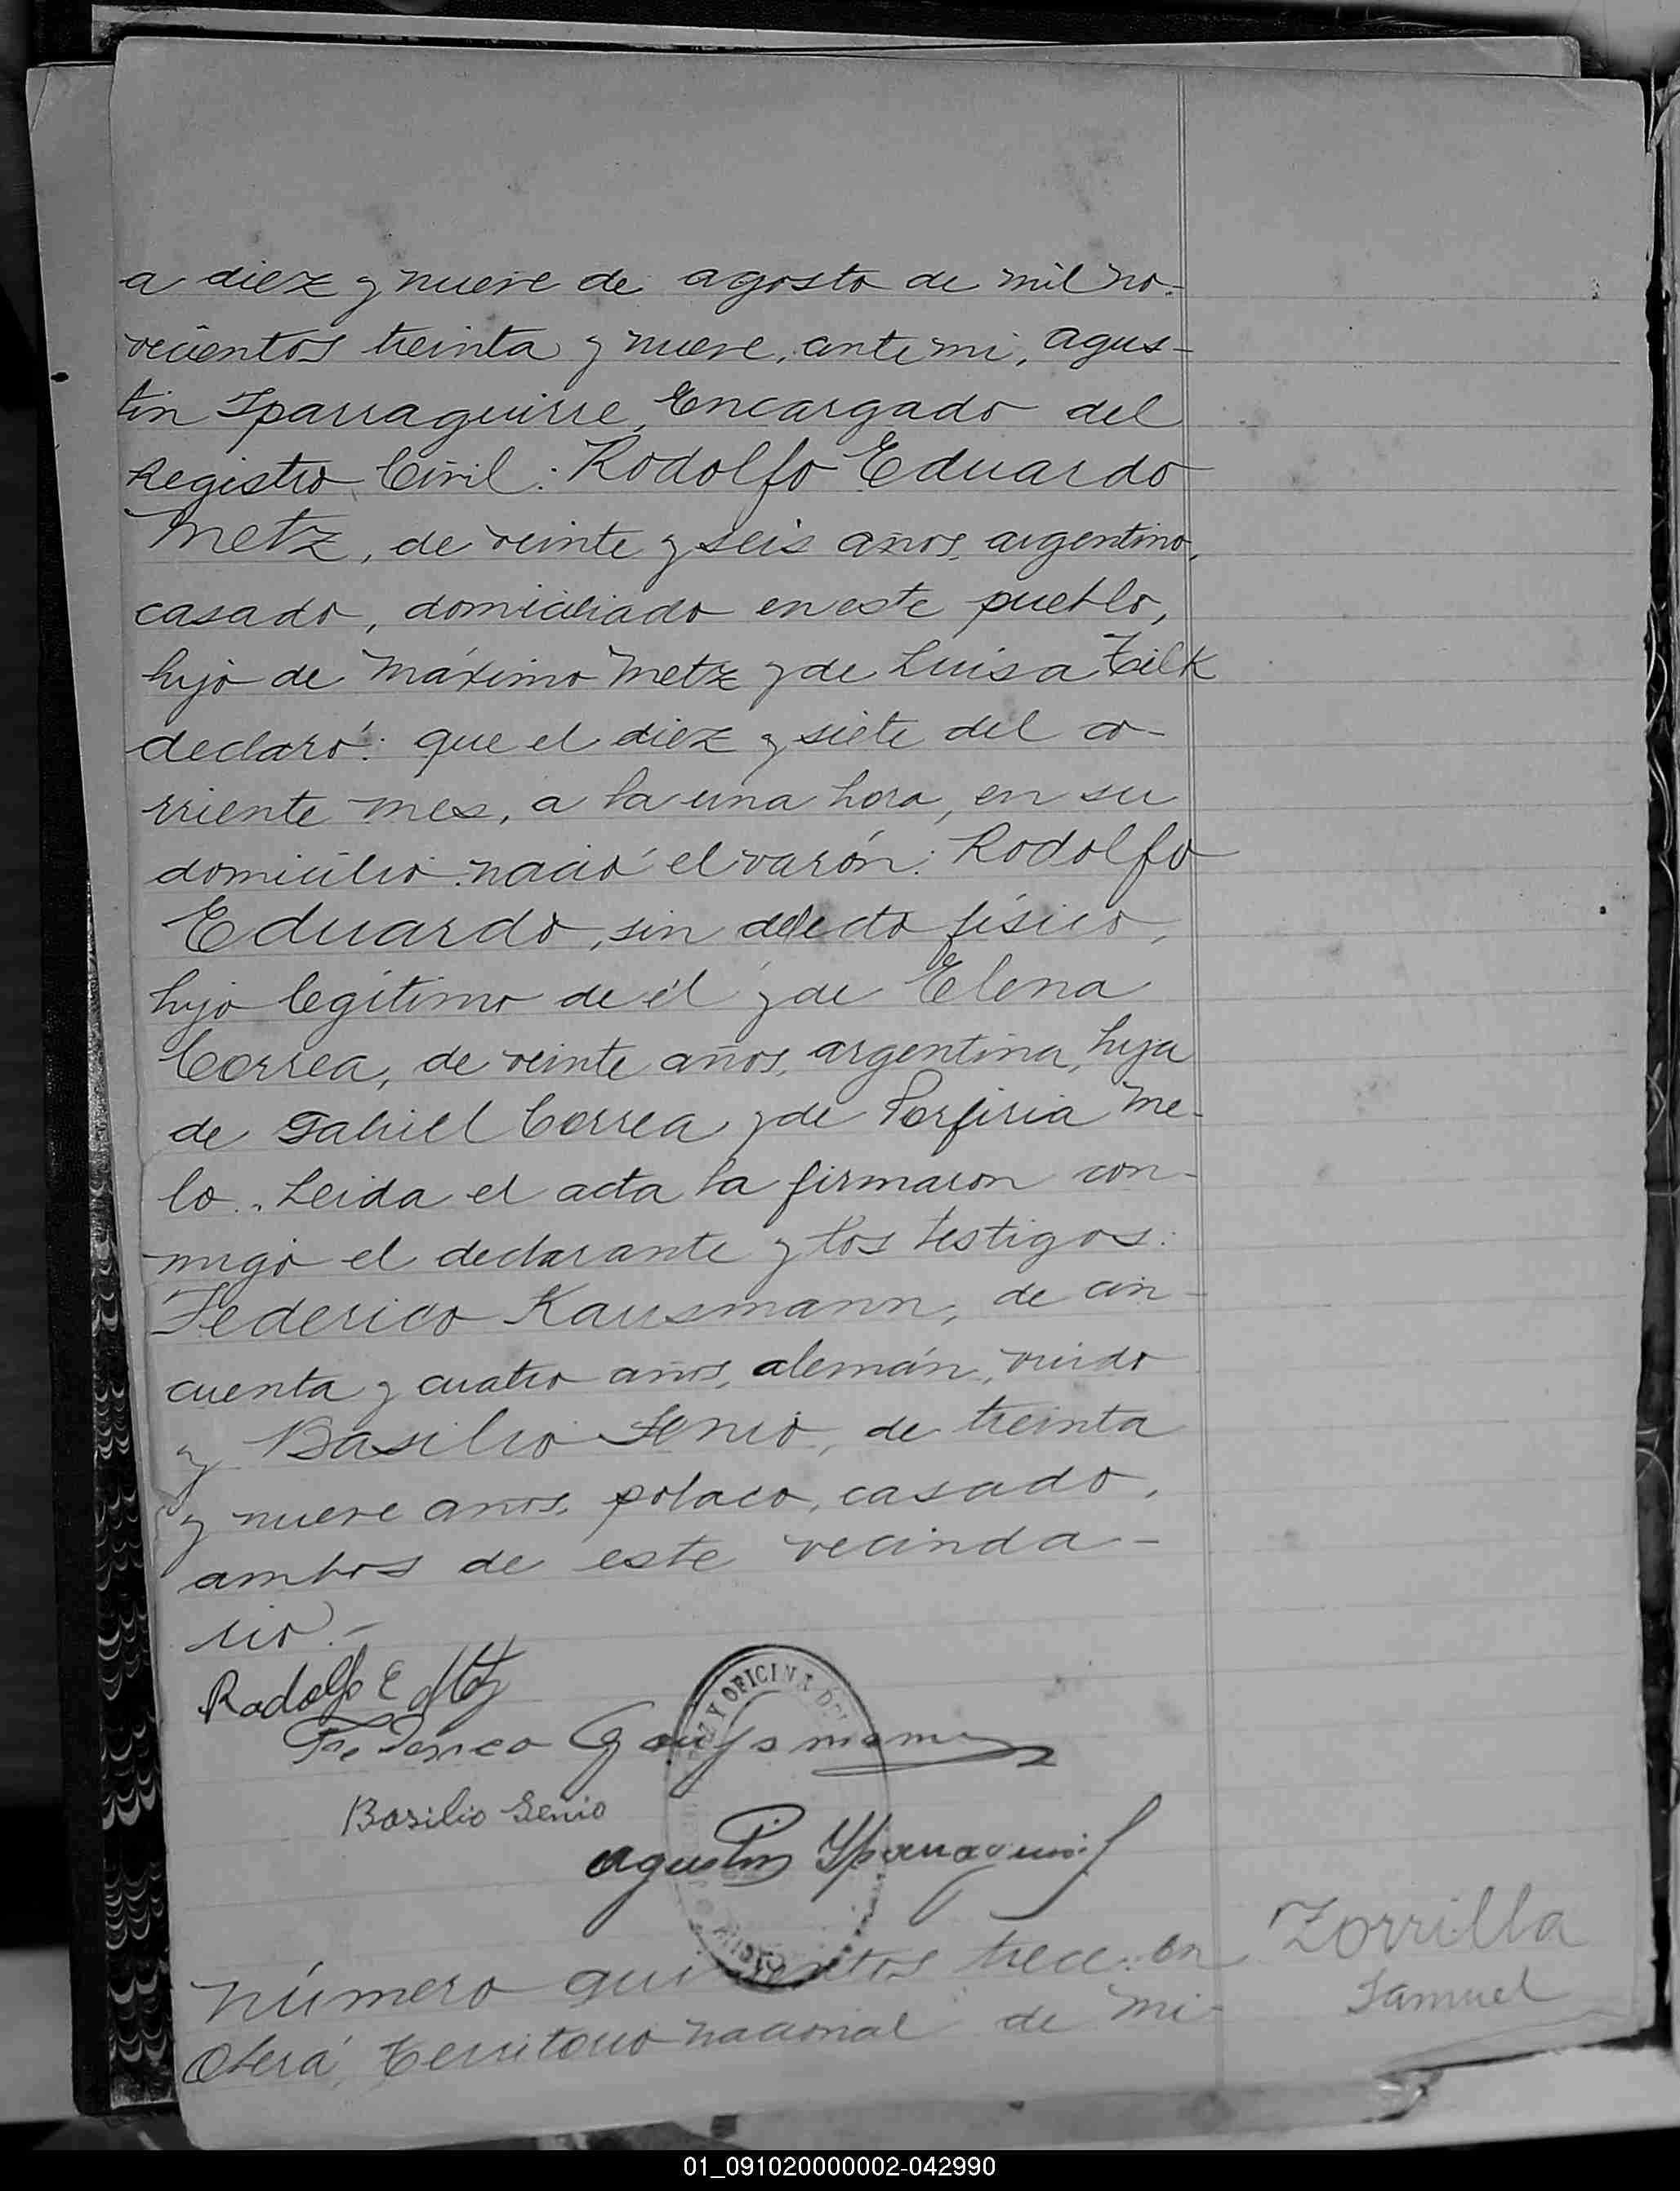 a diez y nueve de agosto de mil no-
vecientos treinta y nueve, ante mi, Agus-
tin Yparraguirre, Encargado del
Registro Civil: Rodolfo Eduardo
Metz, de veinte y seis años, argentino,
casado, domiciliado en este pueblo,
hijo de Máximo Metz y de Luisa Tilk
declaró: que el diez y siete del co-
rriente mes, a la una hora, en su
domicilio nació el varón: Rodolfo
Eduardo, sin defecto físico,
hijo legítimo de él y de Elena
Correa, de veinte años, argentina, hija
de Gabriel Correa y de Porfiria Me-
lo. Leida el acta la firmaron con-
migo el declarante y los testigos:
Federico Kausmann, de cin-
cuenta y cuatro años, alemán, viudo
y Basilio Senio, de treinta
y nueve años, polaco, casado,
ambos de este vecinda-
rio.-
Rodolfo E Metz
Federico
Basilio Senio
Z Y OFICINA DEL
Agustin Yparraguirre
Número quinientos trece: En
Oberá, Territorio nacional de Mi-
Zorrilla
Samuel
01_091020000002-042990